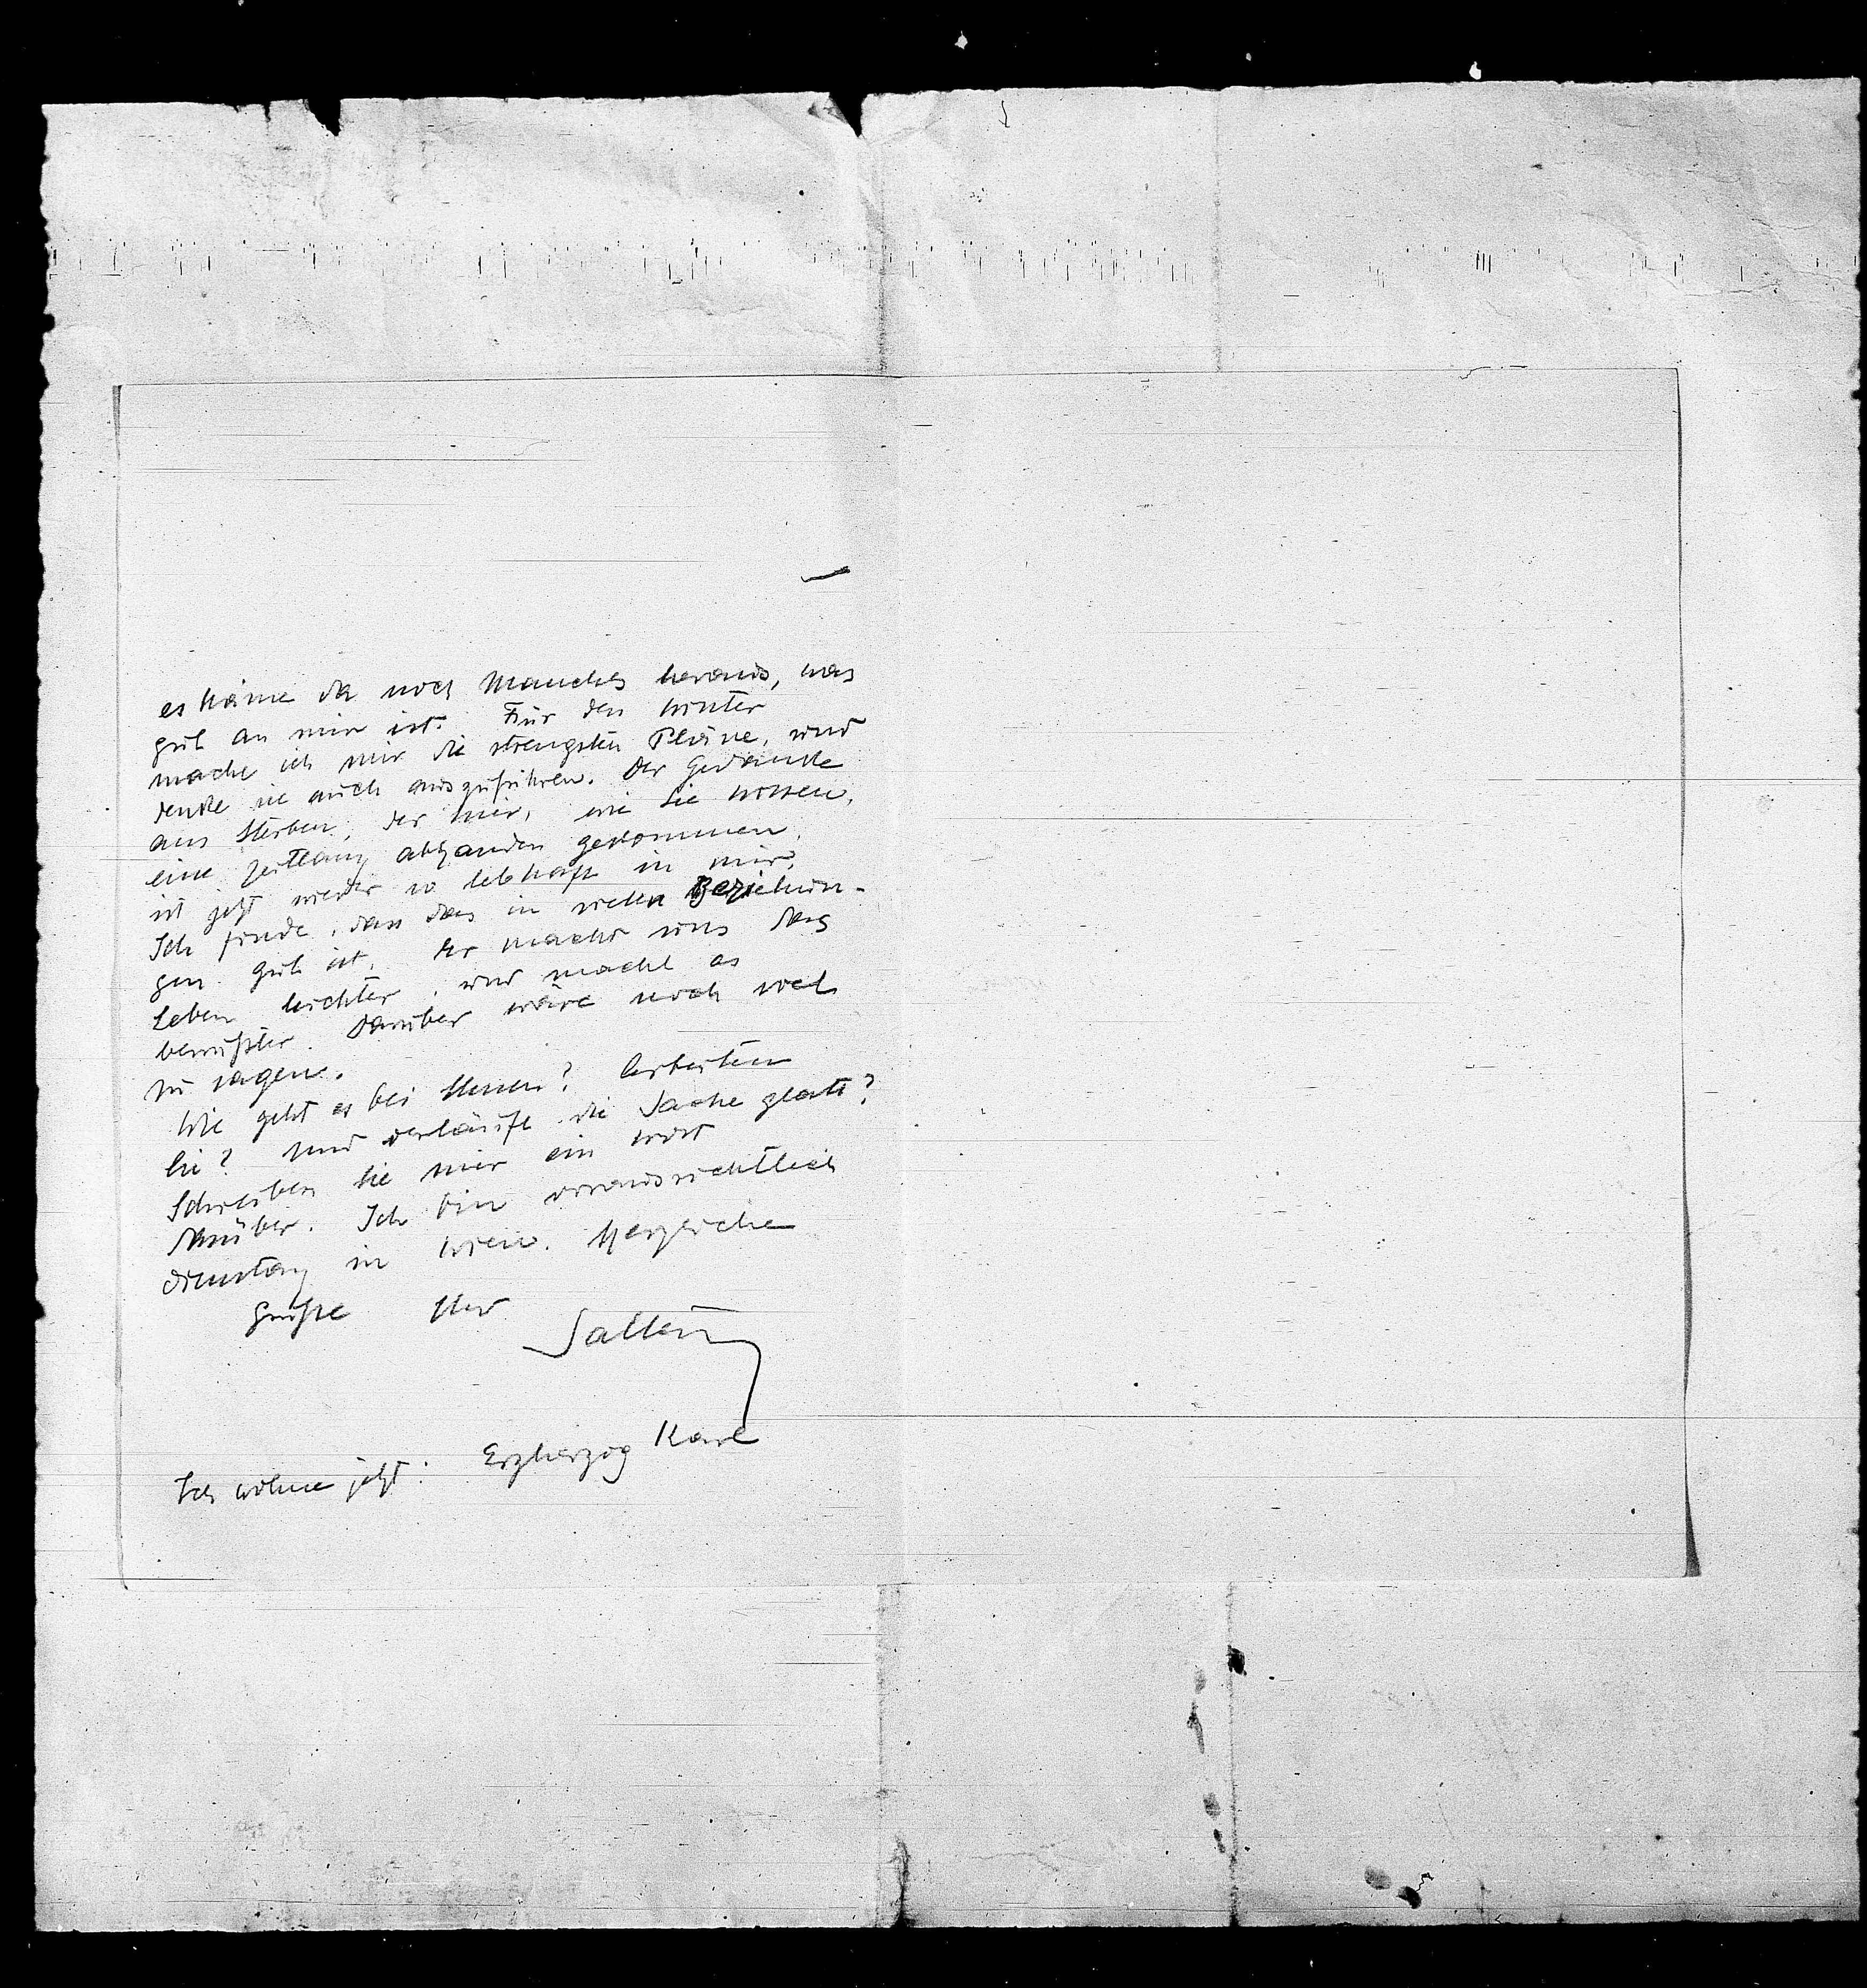 es käme da noch Manches heraus, was
gut an mir ist. Für den Winter
mache ich mir die strengsten Pläne, und
denke sie auch auszuführen. Der Gedanke
ans Sterben, der mir, wie Sie wissen,
eine Zeitlang abhanden gekommen,
ist jetzt wieder so lebhaft in mir.
Ich finde, dass das in vielen Beziehun-
gen gut ist. Er macht uns das
Leben leichter, und macht es
bewußter. Darüber wäre noch viel
zu sagen.
Wie geht es bei Ihnen? Arbeiten
Sie? Und verläuft die Sache glatt?
Schreiben Sie mir ein Wort
darüber. Ich bin voraussichtlich
Dienstag in Wien. Herzliche
Grüße Ihr
Salten
Ich wohne jetzt: Erzherzog Karl